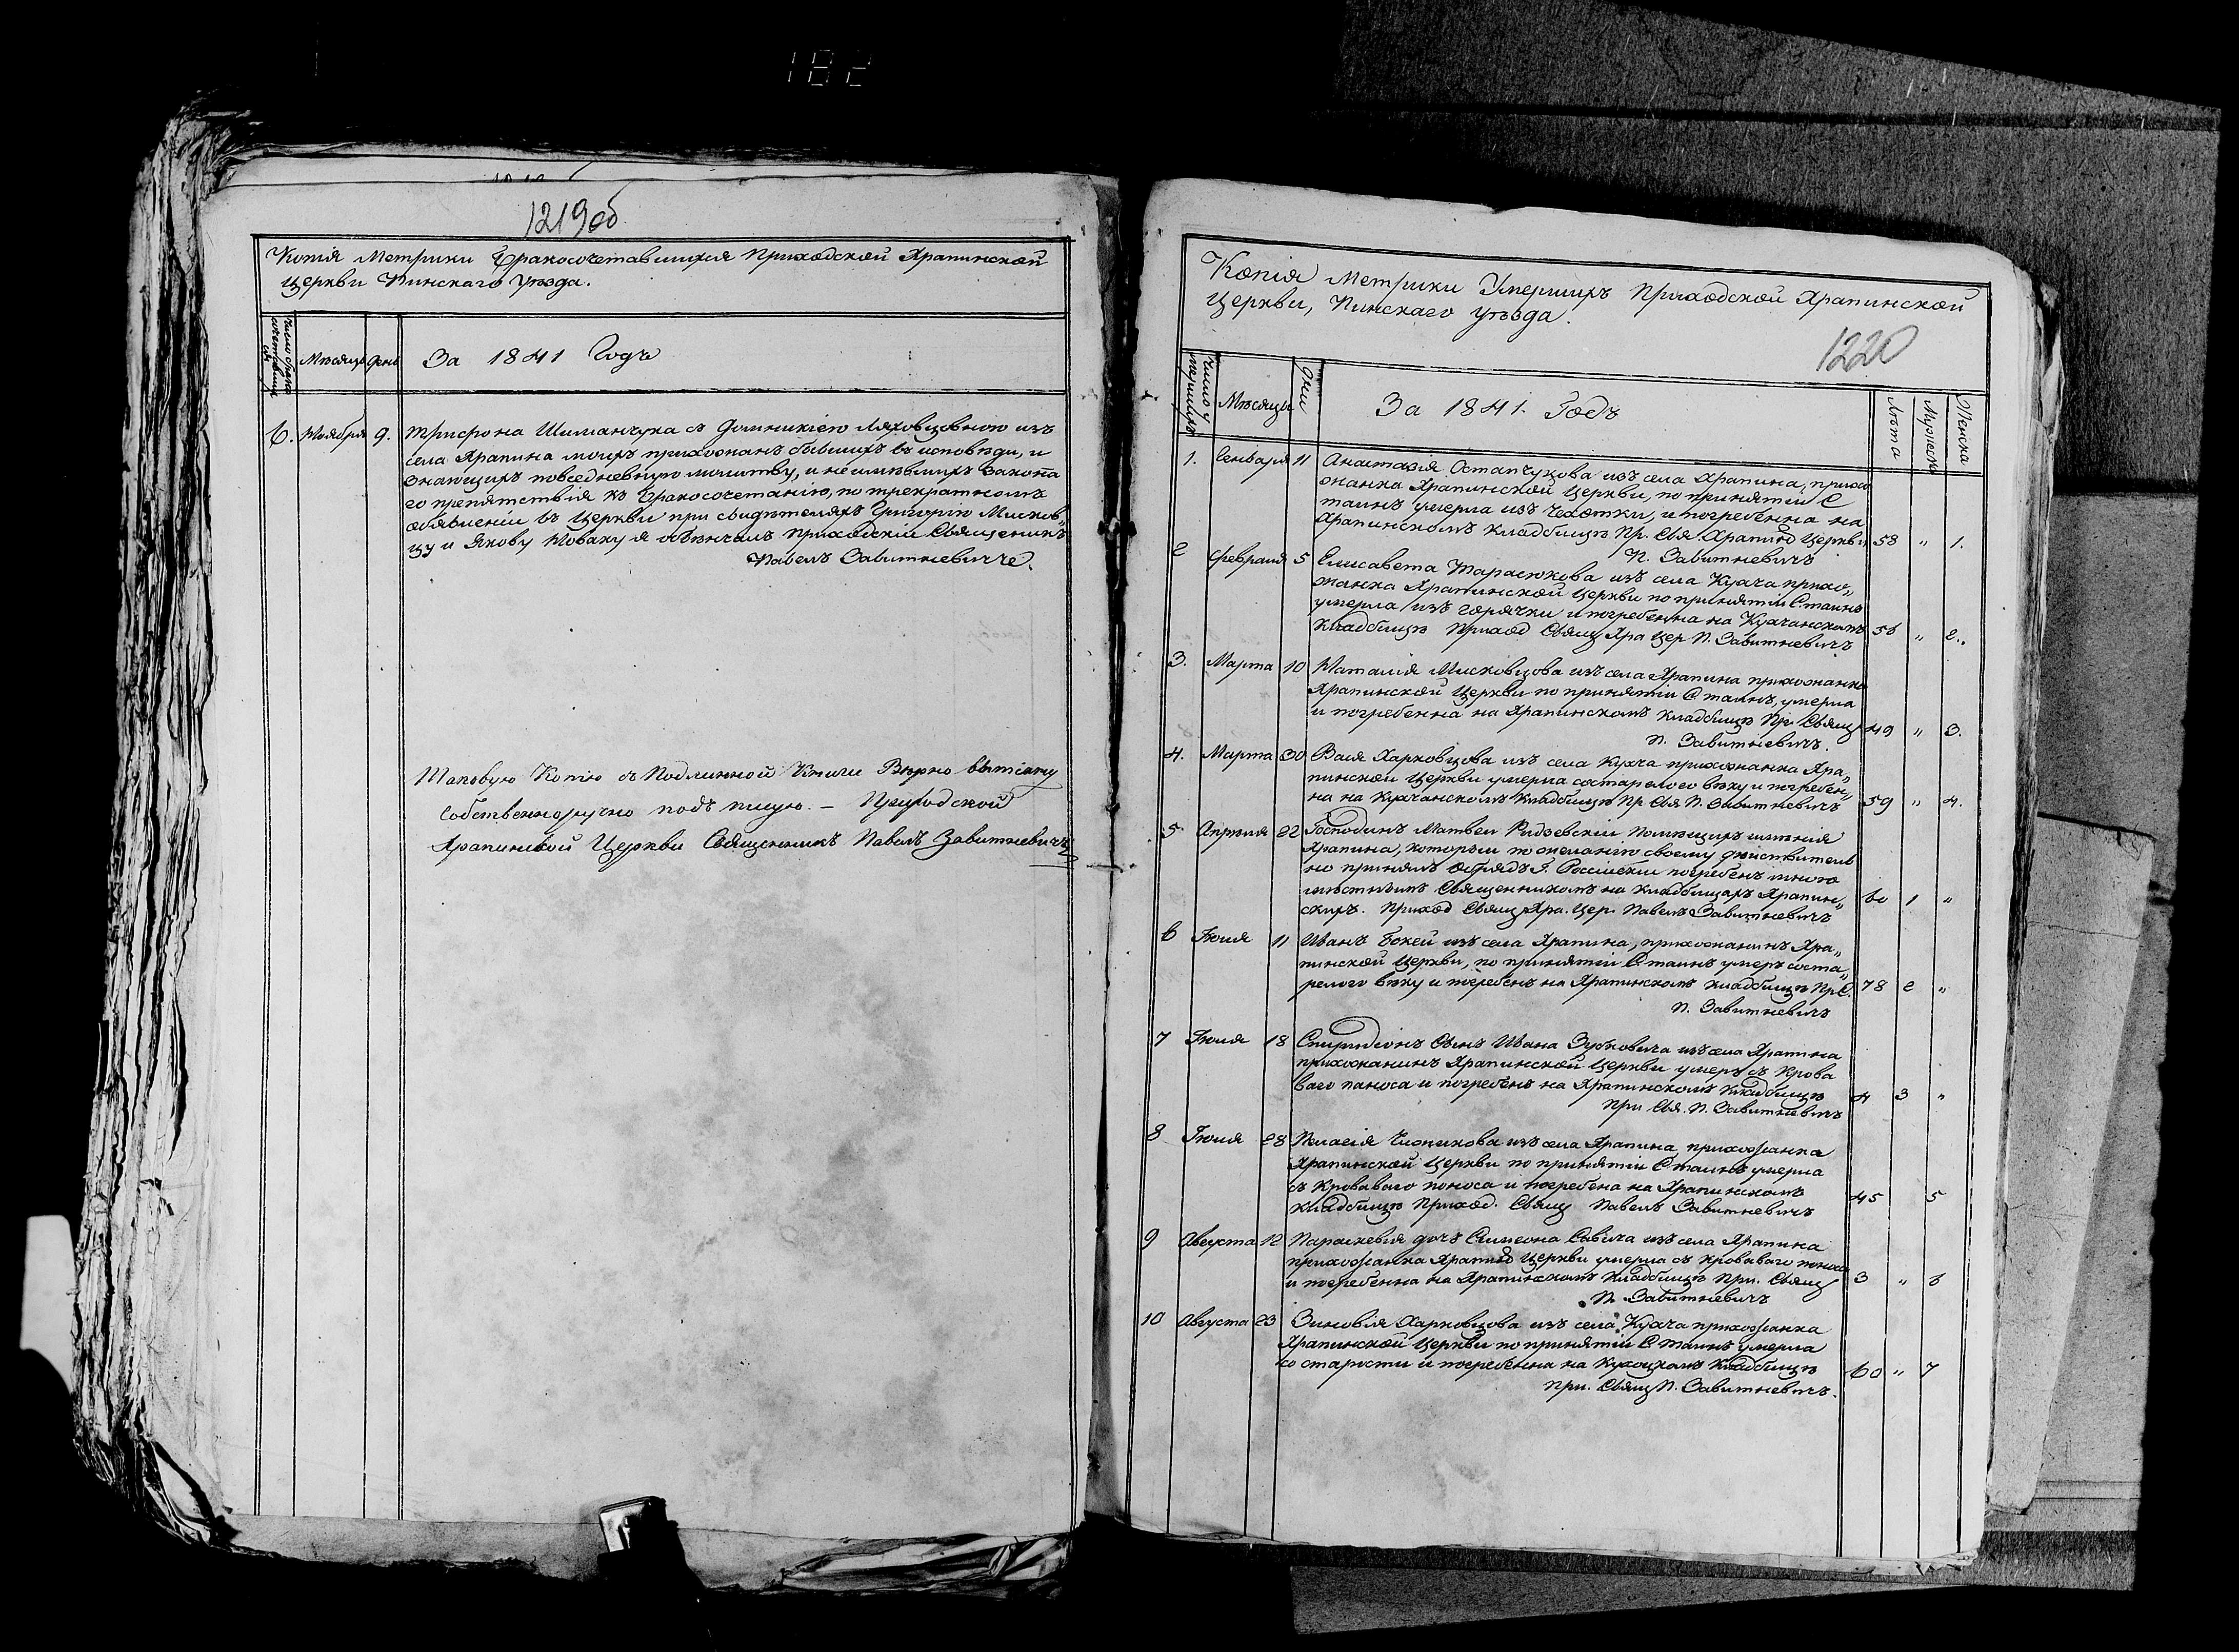 182
1219 об
Копія Метрики Бракосочетавшихся Приходской Храпинской
Церкви Пинскаго Уѣзда.
Мѣсяцъ
день
За 1841 Годъ
6. Ноября 9. Трифона Шиманчука съ Доминикіею Ляховцовною изъ
села Храпина моихъ прихожанъ бывшихъ въ исповѣди, и
знающихъ повседневную молитву, и неимѣвшихъ Закона
го препятствія къ Бракосочетанію, по трекратномъ
объявленіи въ Церкви при свидѣтеляхъ Григорію Мисков„
цу и Якову Новаку я обвѣнчалъ Приходскій Священикъ
Павелъ Завитневичъ.
Таковую Копію съ Подлинной Книги Вѣрно
Собственноручно подъ пишу. – Приходской
Храпинской Церкви Священникъ Павелъ Завитневичъ
Копія Метрики Умершихъ Приходской Храпинской
Церкви, Пинскаго Уѣзда.
1220
Число у
мершихъ
Мѣсяцы
дни
За 1841. Годъ
Лѣта
Мужеска
Женска
1. Генваря 11 Анастазія Остапчукова изъ села Храпина, прихо
жанка Храпинской Церкви, по принятіи С
таинъ умерла изъ Чахотки, и погребенна на
Храпинскомъ кладбищѣ Пр. Свя. Храпинс Церкви 58 „ 1.
П. Завитневичъ
2 Февраля 5 Елисавета Тарасюкова изъ села Кухча прихо„
жанка Храпинской Церкви по принятіи С таинъ
умерла изъ горячки и погребенна на Кухчанскомъ
кладбищѣ Приход Свящ Хра Цер П. Завитневичъ 56 „ 2.
3. Марта 10 Наталія Мисковцова изъ села Храпина прихожанка
Храпинской Церкви по принятіи С таинъ, умерла
и погребенна на Храпинскомъ кладбищѣ Пр. Свящ 49 „ 3.
П. Завитневичъ.
4. Марта 30 Васія Харковцова изъ села Кухча прихожанка Хра„
пинской Церкви умерла состарелого вѣку и погребен„
на на Кухчанскомъ Кладбищѣ Пр Свя П. Завитневичъ 59 „ 4.
5. Апрѣля 22 Господинъ Матвеи Ридзевскіи Помѣщикъ имѣнія
Храпина, которыи по желанію своему дѣиствитель
но принялъ Обрядъ Г. Россіискіи погребенъ мною
мѣстнымъ Священникомъ на кладбищахъ Храпин„
скихъ. Приход Свящ Хра. Цер. Павелъ Завитневичъ 60 1 „
6 Іюля 11 Иванъ Бокей изъ села Храпина, прихожанинъ Хра„
пинской Церкви, по принятіи С таинъ умеръ соста„
релого вѣку и погребенъ на Храпинскомъ кладбищѣ Пр С. 78 2 „
П. Завитневичъ
7 Іюля 18 Спиридіонъ Сынъ Ивана Зубковича изъ села Храпина
прихожанинъ Храпинской Церкви умеръ съ Крова
ваго паноса и погребенъ на Храпинскомъ Кладбищѣ
При Свя. П. Завитневичъ 4 3 „
8 Іюля 28 Пелагія из села Храпина прихожанка
Храпинской Церкви по принятіи С таинъ умерла
съ Кроваваго поноса и погребена на Храпинскомъ
кладбищѣ Приход. Свящ Павелъ Завитневичъ 45 5
9 Августа 12 Параскевія дочъ Симеона Савича изъ села Храпина
прихожанка Храпинс Церкви умерла съ кроваваго поноса
и погребенна на Храпинскомъ Кладбищѣ При. Свящ 3 „ 6
П. Завитневичъ
10 Августа 23 Зиновія Харковцова изъ села Кухча прихожанка
Храпинской Церкви по принятіи С таинъ умерла
со старости и погребенна на Кухоцкомъ Кладбищѣ 60 „ 7
При. Свящ П. Завитневичъ.